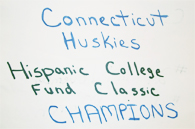 Connecticut
Huskies
Hispanic College
Fund Classic
CHAMPIONS